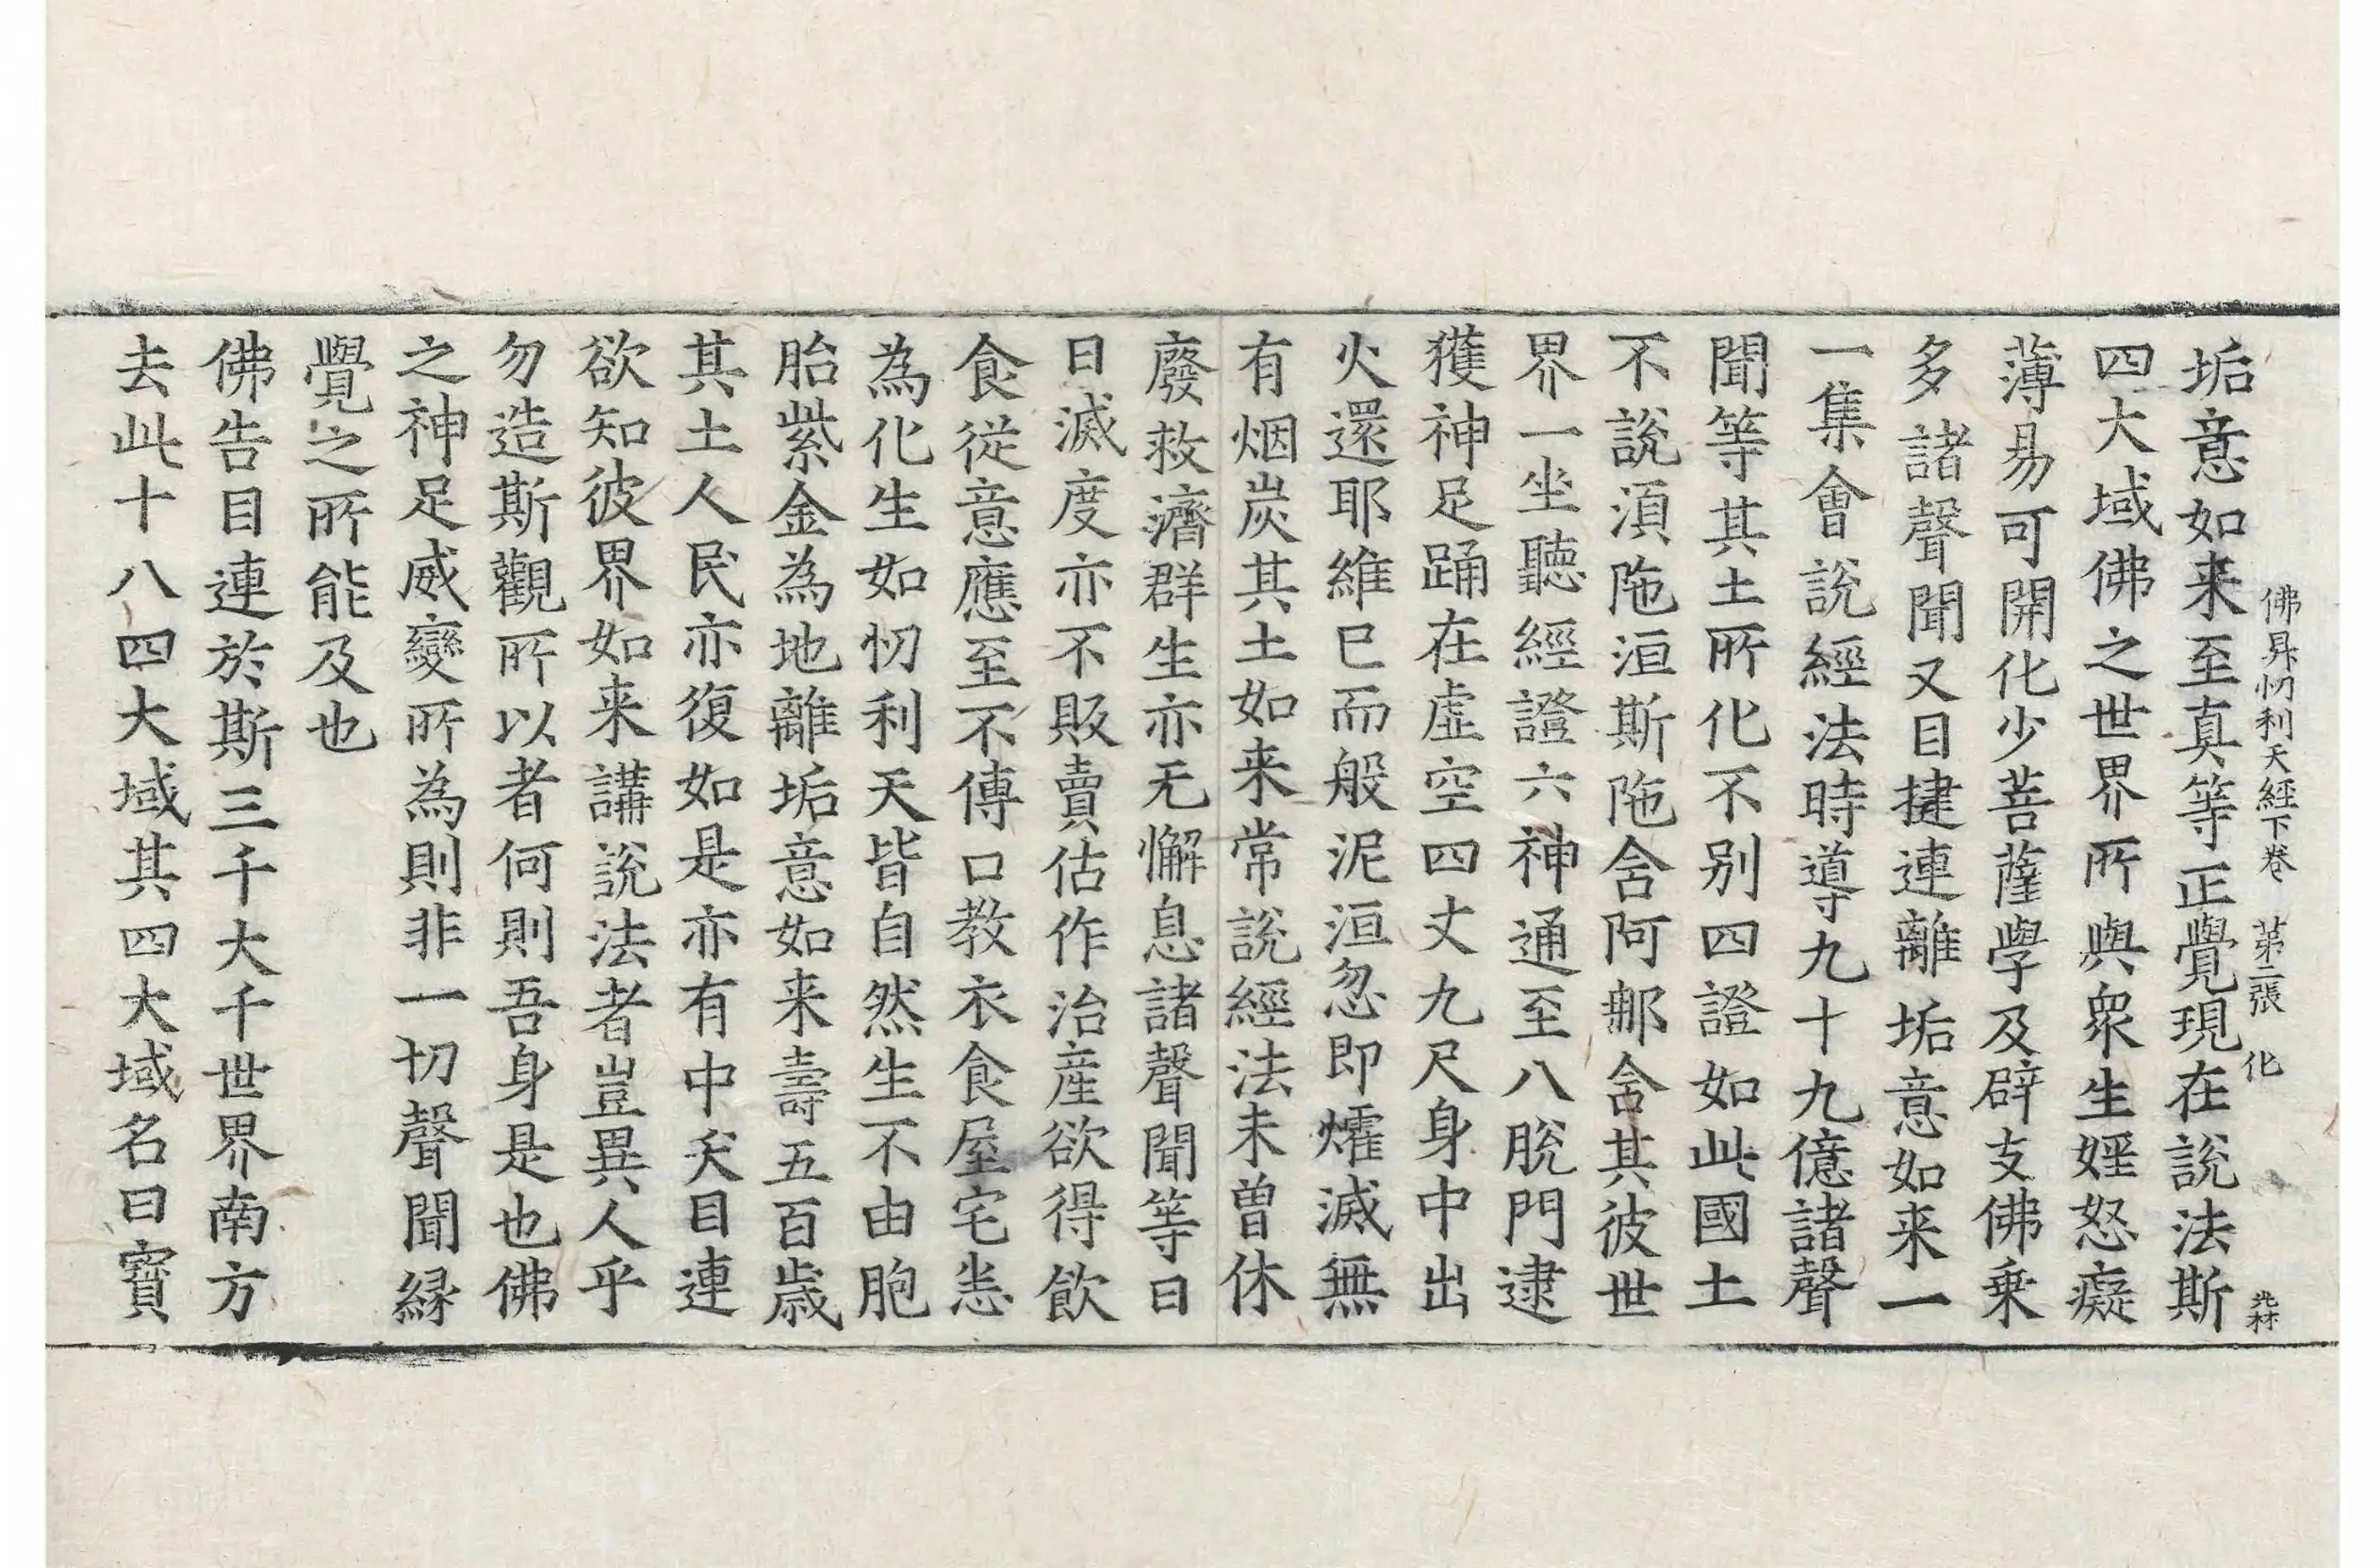 佛昇忉利天經下卷 第二張 化
垢意如来至真等正覺現在說法斯
四大域佛之世界所與眾生婬怒癡
薄易可開化少菩薩學及辟支佛乗
多諸聲聞又目揵連離垢意如来一
一集會說經法時導九十九億諸聲
聞等其土所化不别四證如此國土
不說湏陁洹斯陁含阿那含其彼世
界一坐聽經證六神通至八脫門逮
獲神足踊在虛空四丈九尺身中出
火還耶維已而般泥洹忽即燿滅無
有烟炭其土如来常說經法未曽休
廢救濟群生亦无懈息諸聲聞等日
日滅度亦不販賣估作治産欲得飲
食従意應至不傳口教衣食屋宅恙
為化生如忉利天皆自然生不由胞
胎紫金為地離垢意如来壽五百歲
其土人民亦復如是亦有中夭目連
欲知彼界如来講說法者豈異人乎
勿造斯觀所以者何則吾身是也佛
之神足威變所為則非一切聲聞縁
覺之所能及也
佛告目連於斯三千大千世界南方
去此十八四大域其四大域名曰寳